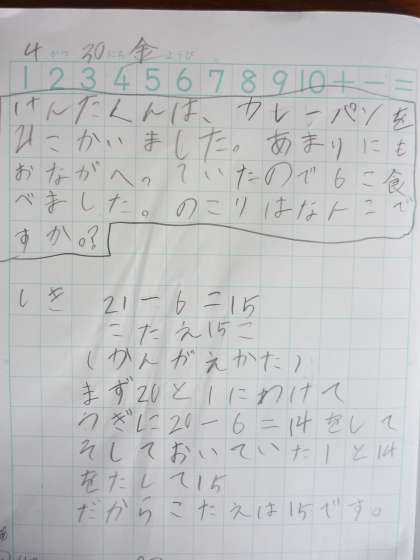 4がつ30にち金ようび
1 2 3 4 5 6 7 8 9 10 + - =
けんたくんは、カレーパンを
21こかいました。あまりにも
おながへっていたので6こ食
べました。のこりはなんこで
すか。?
しき 21-6=15
こたえ15こ
(かんがえかた)
まず20と1にわけて
つぎに20-6=14をして
そしておいていた1と14
をたして15
だからこたえは15です。